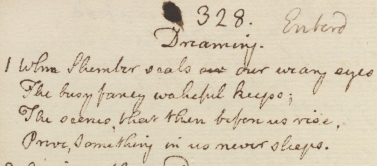 328.
Dreaming.
1 When Slumber seals our weary eyes
The busy fancy wakeful keeps;
The scenes that then before us rise,
Prove, Something in us never sleeps.